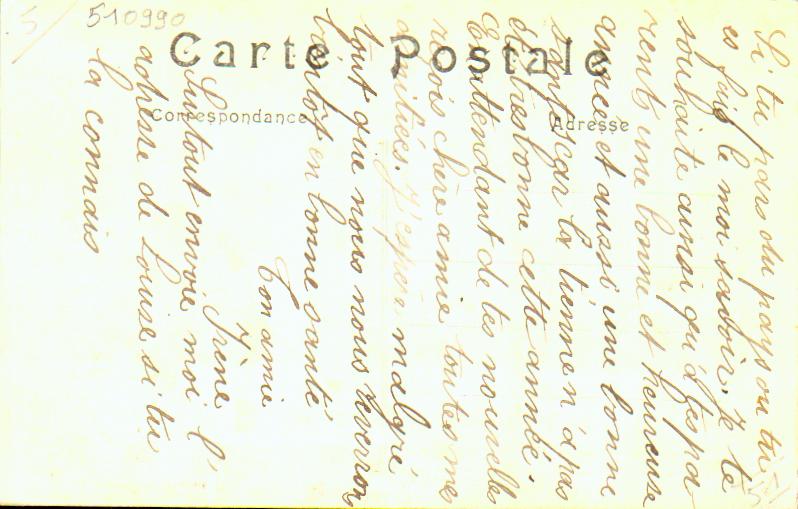 5/
510990
Carte Postale
Correspondance
Adresse
Si tu pars du pays ou tu
es fais le moi savoir. Je te
souhaite ainsi qu'à tes pa-
rents une bonne et heureuse
année et aussi une bonne
santé car la tienne n'a pas
été très bonne cette année.
En attendant de tes nouvelles
reçois chère amie toutes mes
amitiées. J'espère malgré
tout que nous nous reverrons
bientôt en bonne santé
Ton amie
Irène
Surtout envoie moi l'
adresse de Louise si tu
la connais